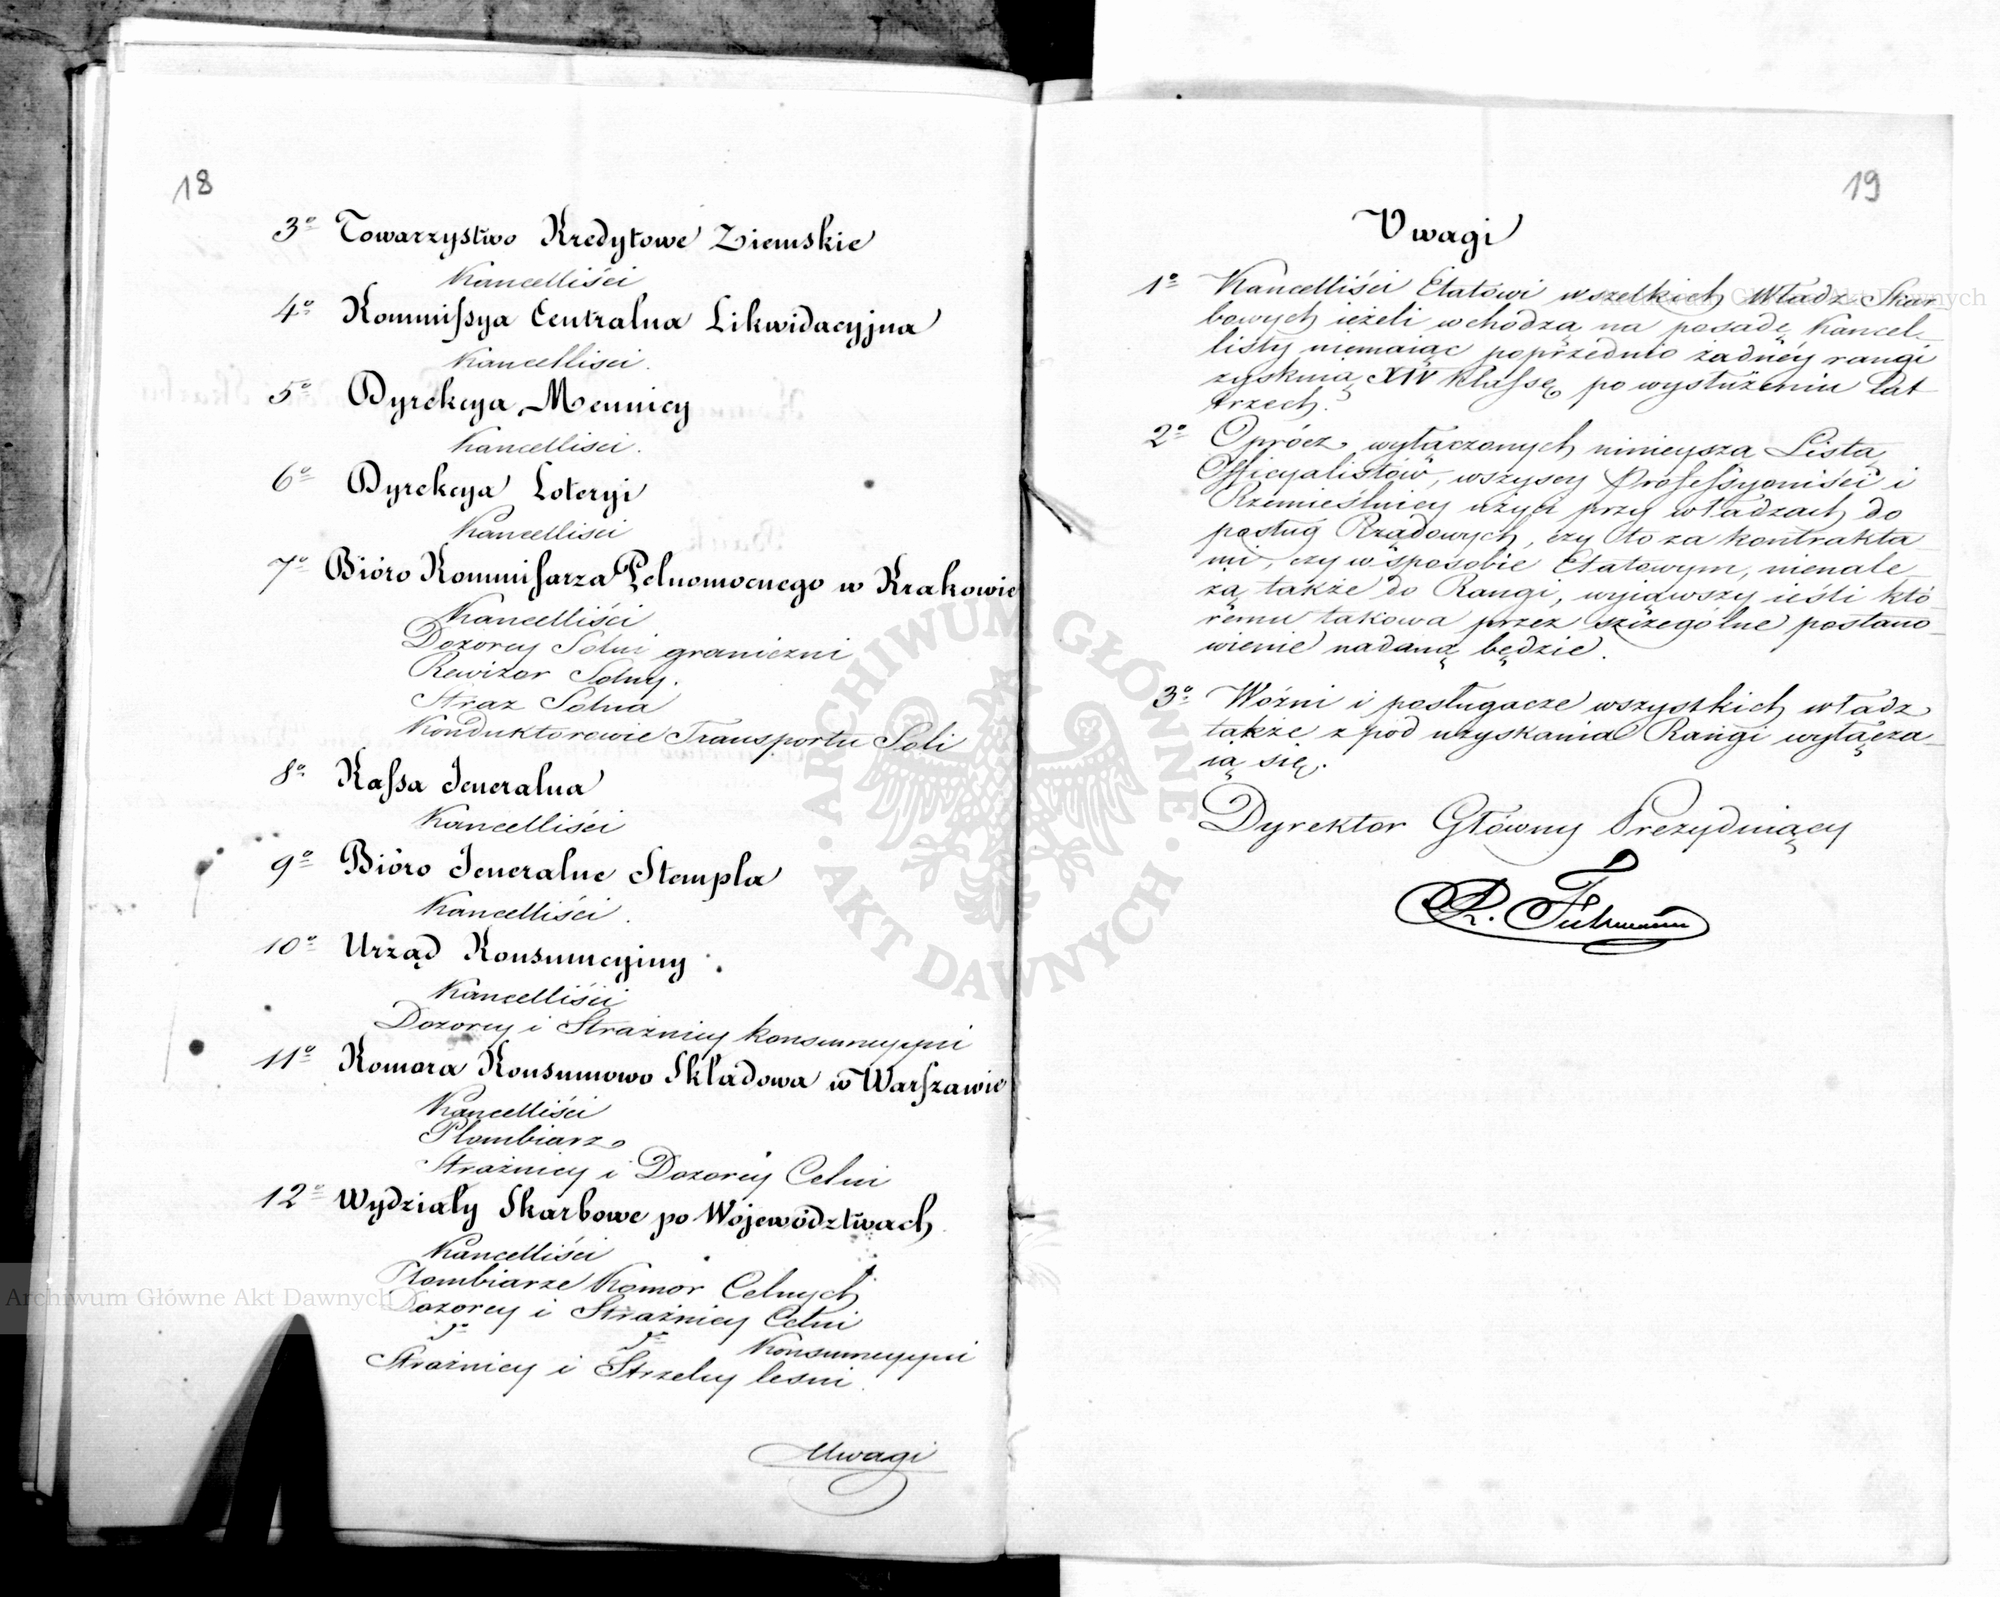 18
3o Towarzystwo Kredytowe Ziemskie
Kancelliści
4o Kommissya Centralna Likwidacyjna
Kancellisci.
5o Dyrekcya Mennicy
Kancellisci.
6o Dyrekcya Loteryi
Kancellisci
7o Bióro Kommisarza Pełnomocnego w Krakowie
Kancelliści
Dozorcy Solni graniczni
Rewizor Solny.
Straz Solna
Konduktorowie Transportu Soli
8o Kassa Jeneralna
Kancelliści
9o Bióro Jeneralne Stempla
Kancelliści.
10o Urząd Konsumcyiny.
Kancelliści
Dozorcy i Strażnicy konsumcyini
11o Komora Konsumowo Składowa w Warszawie
Kancelliści
Plombiarz
Strażnicy i Dozorcy Celni
12o Wydziały Skarbowe po Województwach
Kancelliści
Plombiarze Komor Celnych
Dozorcy i Strażnicy Celni
do do Konsumcyini
Strażnicy i Strzelcy lesni.
Uwagi
19
Uwagi
1o Kancelliści Etatowi wszelkich Władz Skar
bowych ieżeli wchodzą na posadę Kancel-
listy niemaiąc poprzednio żadnéy rangi
zyskuią XIV klassę po wysłużeniu lat
trzech.
2o Oprócz wyłączonych ninieyszą Listą
Officyalistów, wszyscy Professyoniści i
Rzemieślnicy użyci przy władzach do
posług Rządowych, czy to za kontrakta
mi, czy w sposobie Etatowym, nienale
żą także do Rangi, wyiąwszy ieśli któ
remu takowa przez szczególne postano
wienie nadaną będzie.
3o Woźni i posługacze wszystkich władz
także z pod uzyskania Rangi wyłącza
ią się.
Dyrektor Główny Prezyduiący
R. Fuhrmann
ARCHIWUM GŁÓWNE · AKT DAWNYCH ·
Archiwum Główne Akt Dawnych
Archiwum Główne Akt Dawnych